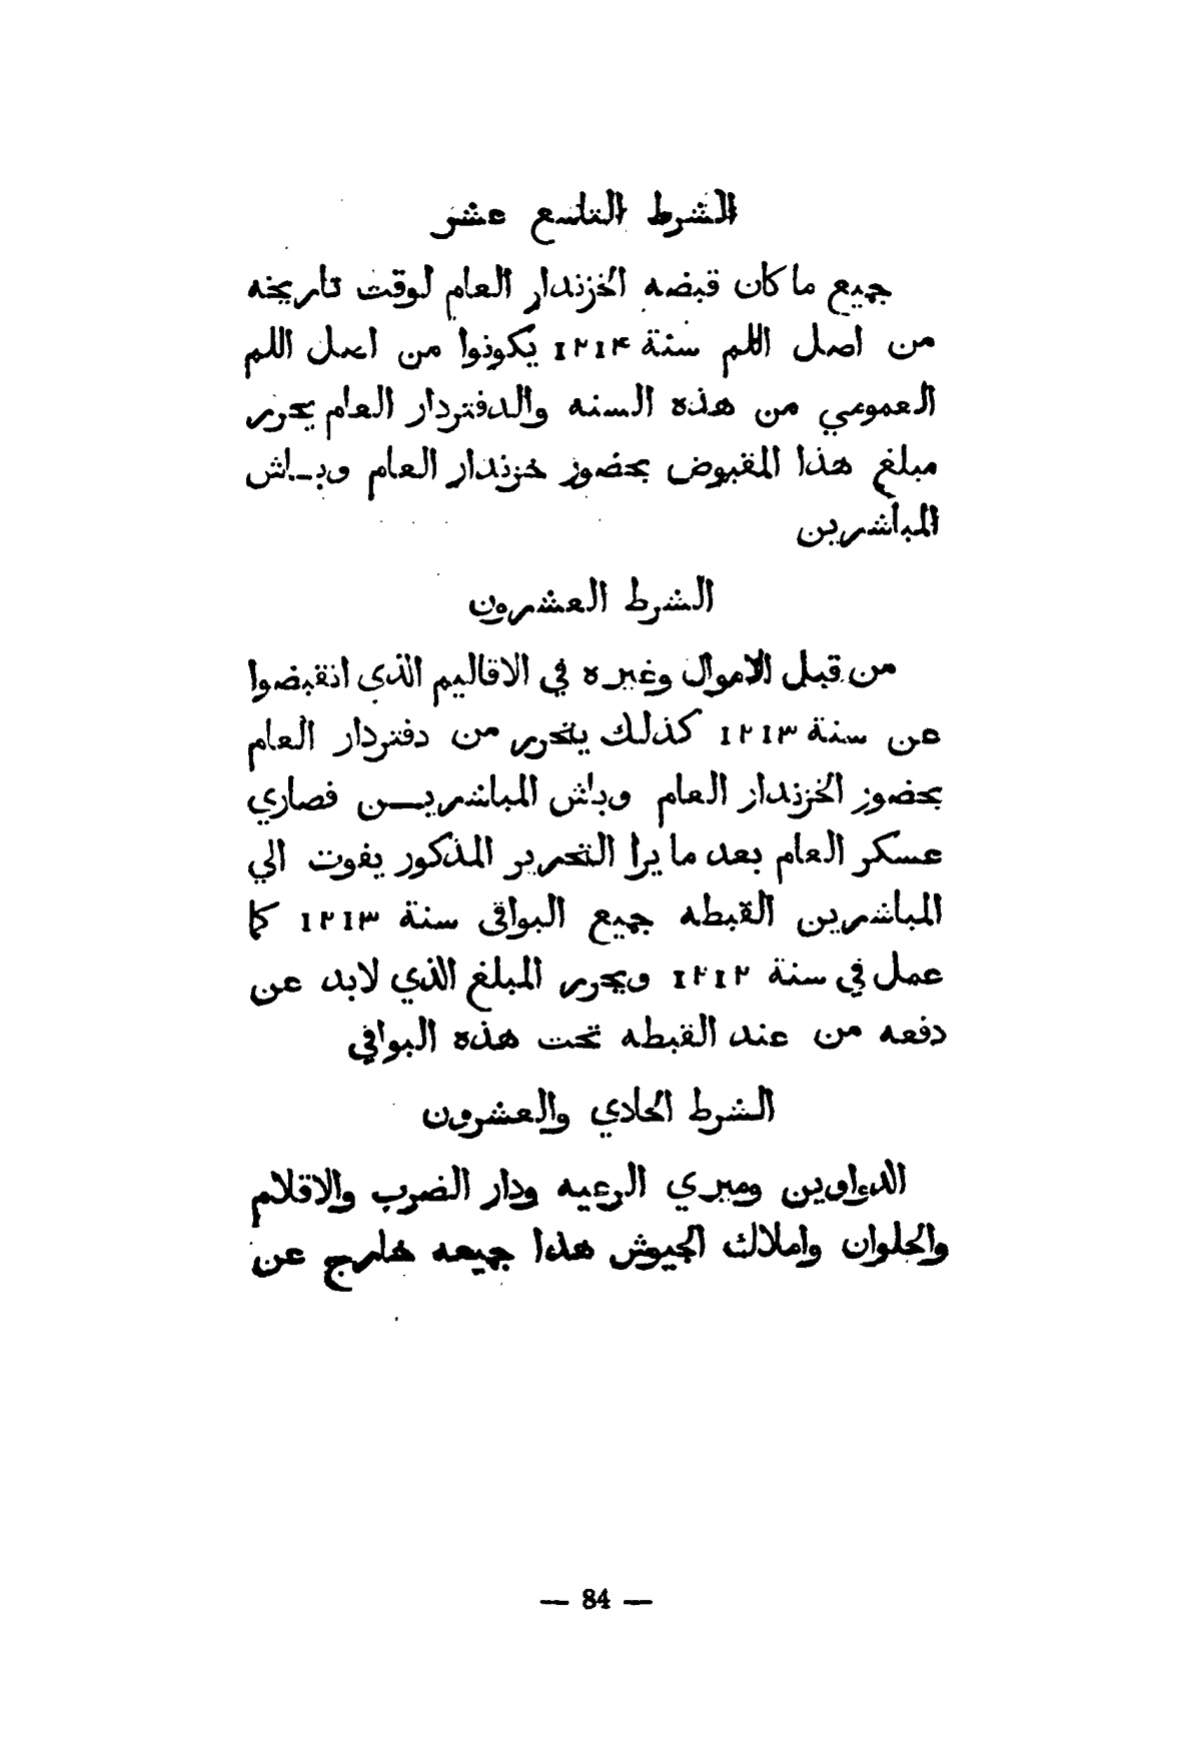 الشرط التاسع عشر
جميع ما كان قبضه الخزندار العام لوقت تاريخه
من اصل اللم سنة ١٢١٤ يكونوا من اصل اللم
العمومي من هذه السنه والدفتردار العام يحرر
مبلغ هذا المقبوض بحضور خزندار العام وباش
المباشرين
الشرط العشرون
من قبل الاموال وغيره في الاقاليم الذي انقبضوا
عن سنة ١٢١٣ كذلك يتحرر من دفتردار العام
بحضور الخزندار العام وباش المباشرين فصاري
عسكر العام بعد ما يرا التحرير المذكور يفوت الي
المباشرين القبطه جميع البواقي سنة ١٢١٣ كما
عمل في سنة ١٢١٢ ويحرر المبلغ الذي لابد عن
دفعه من عند القبطه تحت هذه البواقي
الشرط الحادي والعشرون
الدواوين وميري الرعيه ودار الضرب والاقلام
والحلوان واملاك الجيوش هذا جميعه خارج عن
— 84 —